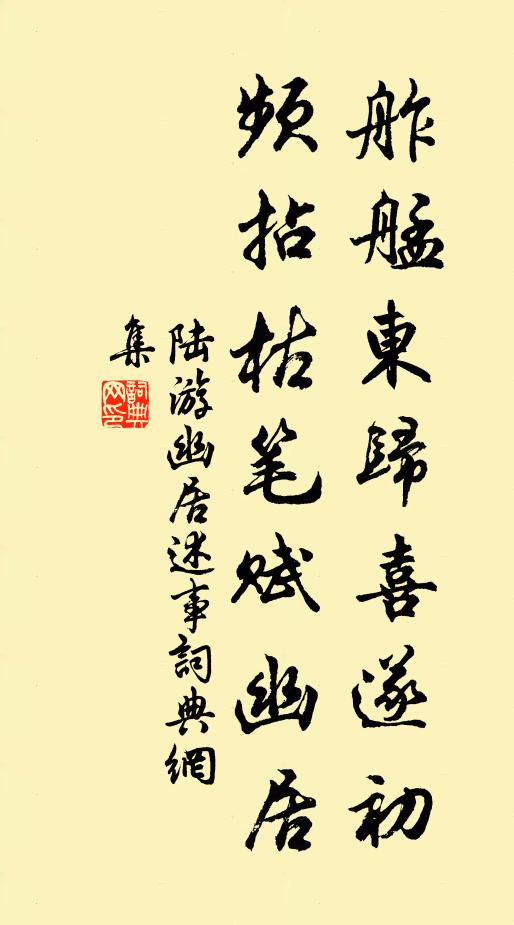 舴艋東歸喜遂初
頻拈枯笔賦幽居
陆游幽居述事詞典網
集
詞典网印